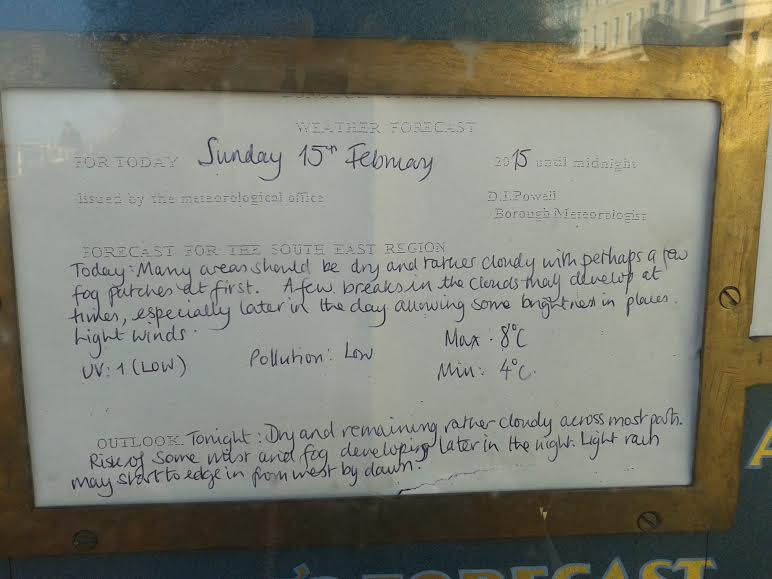 WEATHER FORECAST
FOR TODAY Sunday 15th February 2015 until midnight
Issued by the meteorological office D.J.Powell
Borough Meteorologist
FORECAST FOR THE SOUTH EAST REGION
Today: Many areas should be dry and rather cloudy with perhaps a few
fog patches at first. A few breaks in the clouds may develop at
times, especially later in the day allowing some brightness in places.
Light winds.
UV: 1 (LOW) Pollution: Low Max: 8°C
Min: 4°C.
OUTLOOK. Tonight: Dry and remaining rather cloudy across most parts.
Risk of some mist and fog developing later in the night. Light rain
may start to edge in from west by dawn.
FORECAST